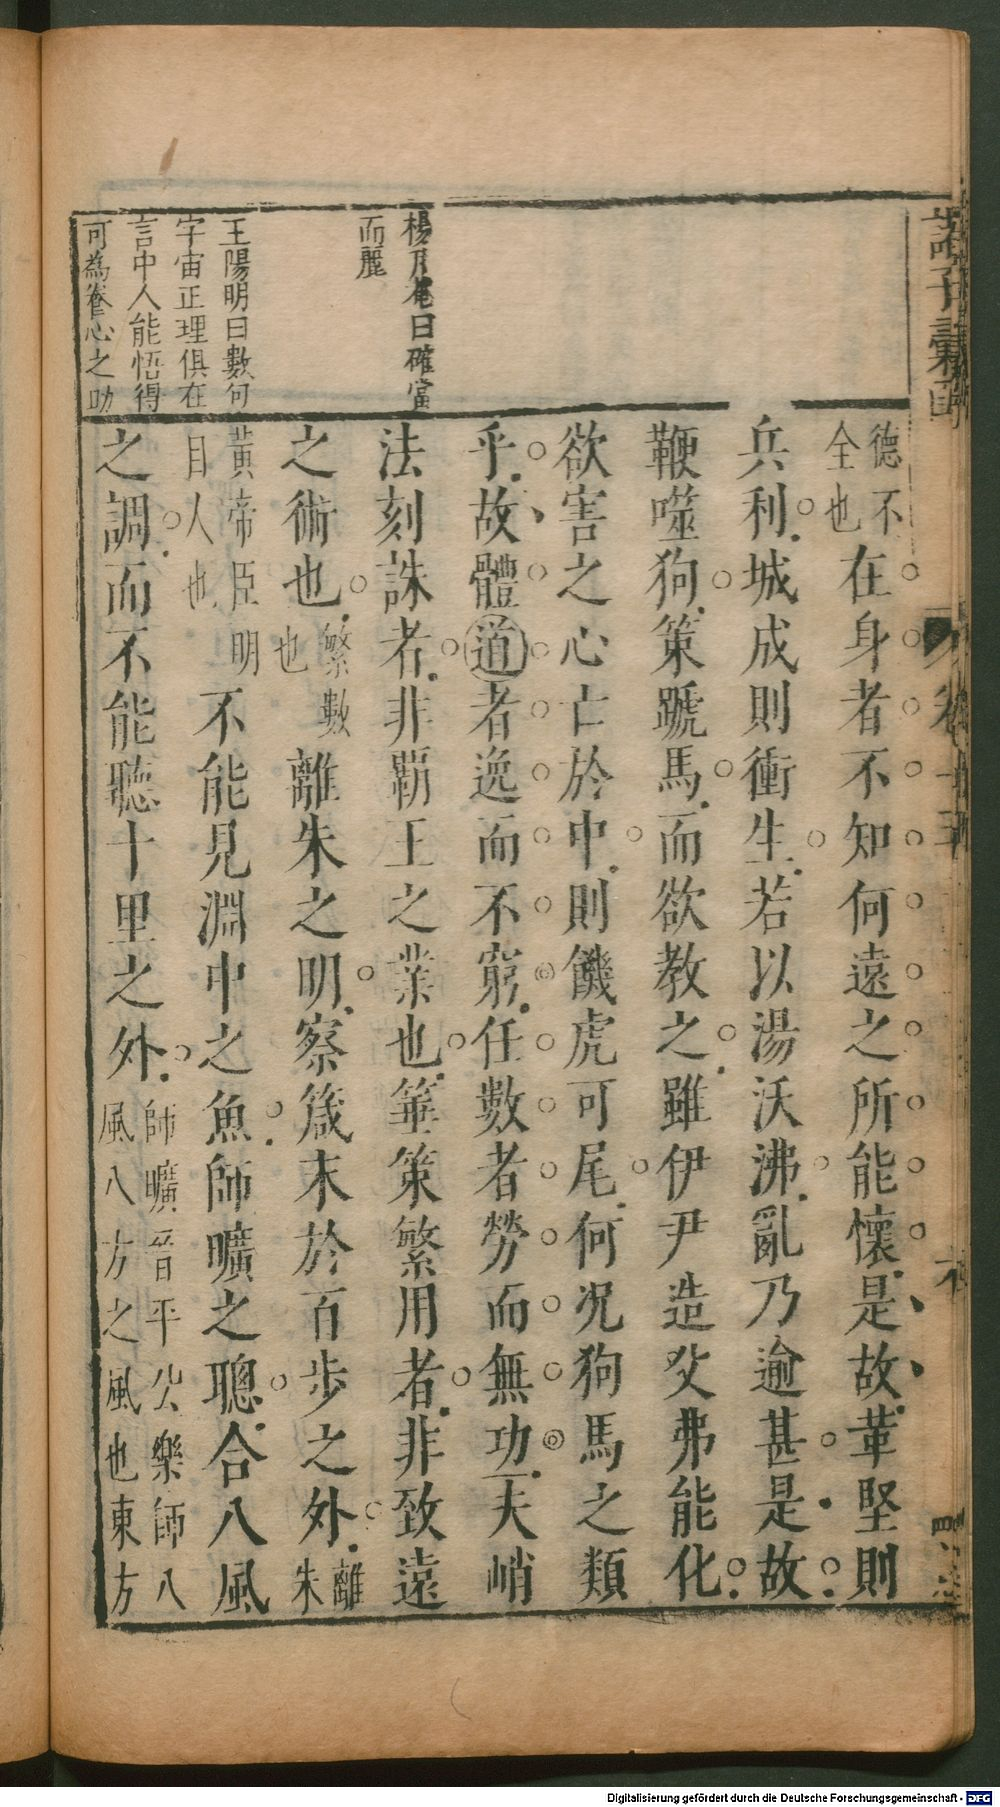 諸子彙函
楊升菴曰確當
而麗
王陽明曰數何
宇宙正理俱在
言中人能悟得
可為養心之助
德不
全也
在身者不知何遠之所能懷是故革堅則
兵利城成則衝生若以湯沃沸亂乃逾甚是故
鞭噬狗策蹏馬而欲教之雖伊尹造父弗能化
欲害之心亡於中則饑虎可尾何況狗馬之類
乎故體道者逸而不窮任數者勞而無功夫峭
法刻誅者非霸王之業也箠策繁用者非致遠
之術也
繁數
也
離朱之明察箴末於百步之外
離
朱
黃帝臣明
目人也
不能見淵中之魚師曠之聰合八風
之調而不能聽十里之外
師曠晉平公樂師八
風八方之風也東方
Digitalisierung gefördert durch die Deutsche Forschungsgemeinschaft - DFG